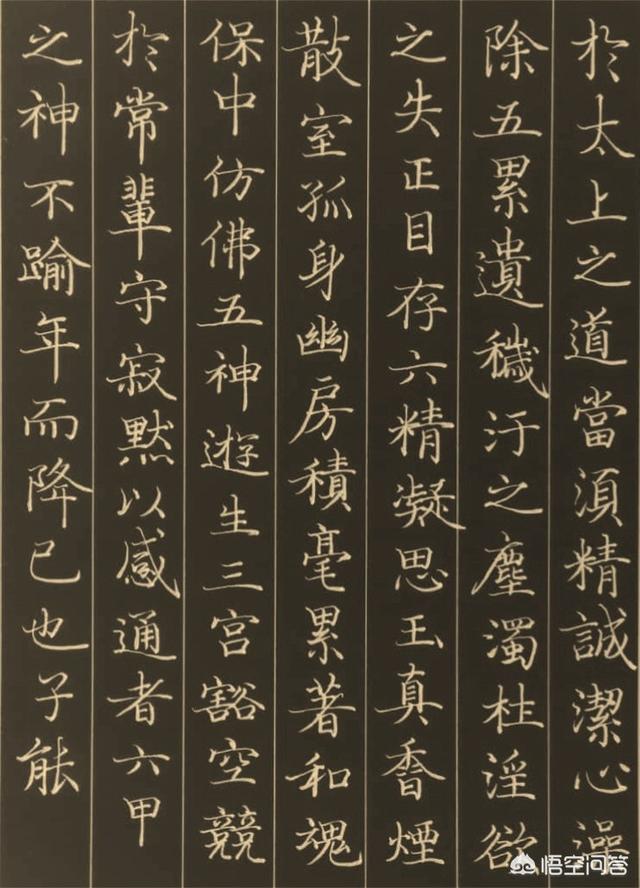 於太上之道當湏精誠潔心澡
除五累遺穢汙之塵濁杜淫欲
之失正目存六精凝思玉真香煙
散室孤身幽房積毫累著和魂
保中仿佛五神遊生三宫豁空競
於常輩守寂默以感通者六甲
之神不踰年而降已也子能
悟空问答